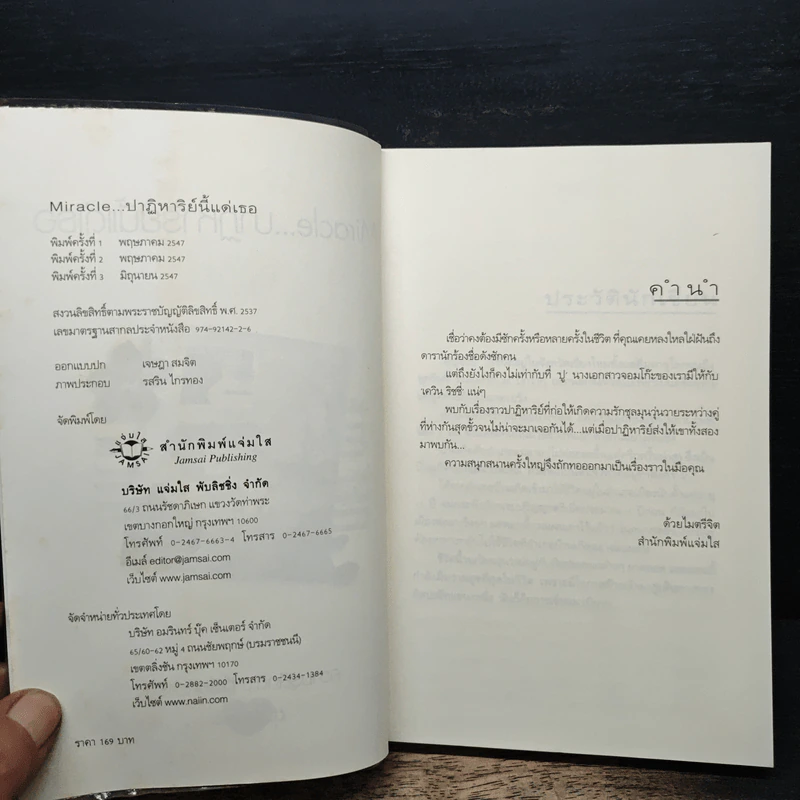 Miracle...ปาฏิหาริย์นี้แด่เธอ
พิมพ์ครั้งที่ 1 พฤษภาคม 2547
พิมพ์ครั้งที่ 2 พฤษภาคม 2547
พิมพ์ครั้งที่ 3 มิถุนายน 2547
สงวนลิขสิทธิ์ตามพระราชบัญญัติลิขสิทธิ์ พ.ศ. 2537
เลขมาตรฐานสากลประจำหนังสือ 974-92142-2-6
ออกแบบปก เจษฎา สมจิต
ภาพประกอบ รสริน ไกรทอง
จัดพิมพ์โดย
แจ่มใส
JAMSAI
สำนักพิมพ์แจ่มใส
Jamsai Publishing
บริษัท แจ่มใส พับลิชชิ่ง จำกัด
66/3 ถนนรัชดาภิเษก แขวงวัดท่าพระ
เขตบางกอกใหญ่ กรุงเทพฯ 10600
โทรศัพท์ 0-2467-6663-4 โทรสาร 0-2467-6665
อีเมล์ editor@jamsai.com
เว็บไซต์ www.jamsai.com
จัดจำหน่ายทั่วประเทศโดย
บริษัท อมรินทร์ บุ๊ค เซ็นเตอร์ จำกัด
65/60-62 หมู่ 4 ถนนชัยพฤกษ์ (บรมราชชนนี)
เขตตลิ่งชัน กรุงเทพฯ 10170
โทรศัพท์ 0-2882-2000 โทรสาร 0-2434-1384
เว็บไซต์ www.naiin.com
ราคา 169 บาท
คำนำ
เชื่อว่าคงต้องมีซักครั้งหรือหลายครั้งในชีวิต ที่คุณเคยหลงใหลใฝ่ฝันถึง
ดารานักร้องชื่อดังซักคน
แต่ถึงยังไงก็คงไม่เท่ากับที่ 'ปู' นางเอกสาวจอมโก๊ะของเรามีให้กับ
'เควิน ริชชี่' แน่ๆ
พบกับเรื่องราวปาฏิหาริย์ที่ก่อให้เกิดความรักชุลมุนวุ่นวายระหว่างคู่
ที่ห่างกันสุดขั้วจนไม่น่าจะมาเจอกันได้...แต่เมื่อปาฏิหาริย์ส่งให้เขาทั้งสอง
มาพบกัน...
ความสนุกสนานครั้งใหญ่จึงถักทอออกมาเป็นเรื่องราวในมือคุณ
ด้วยไมตรีจิต
สำนักพิมพ์แจ่มใส